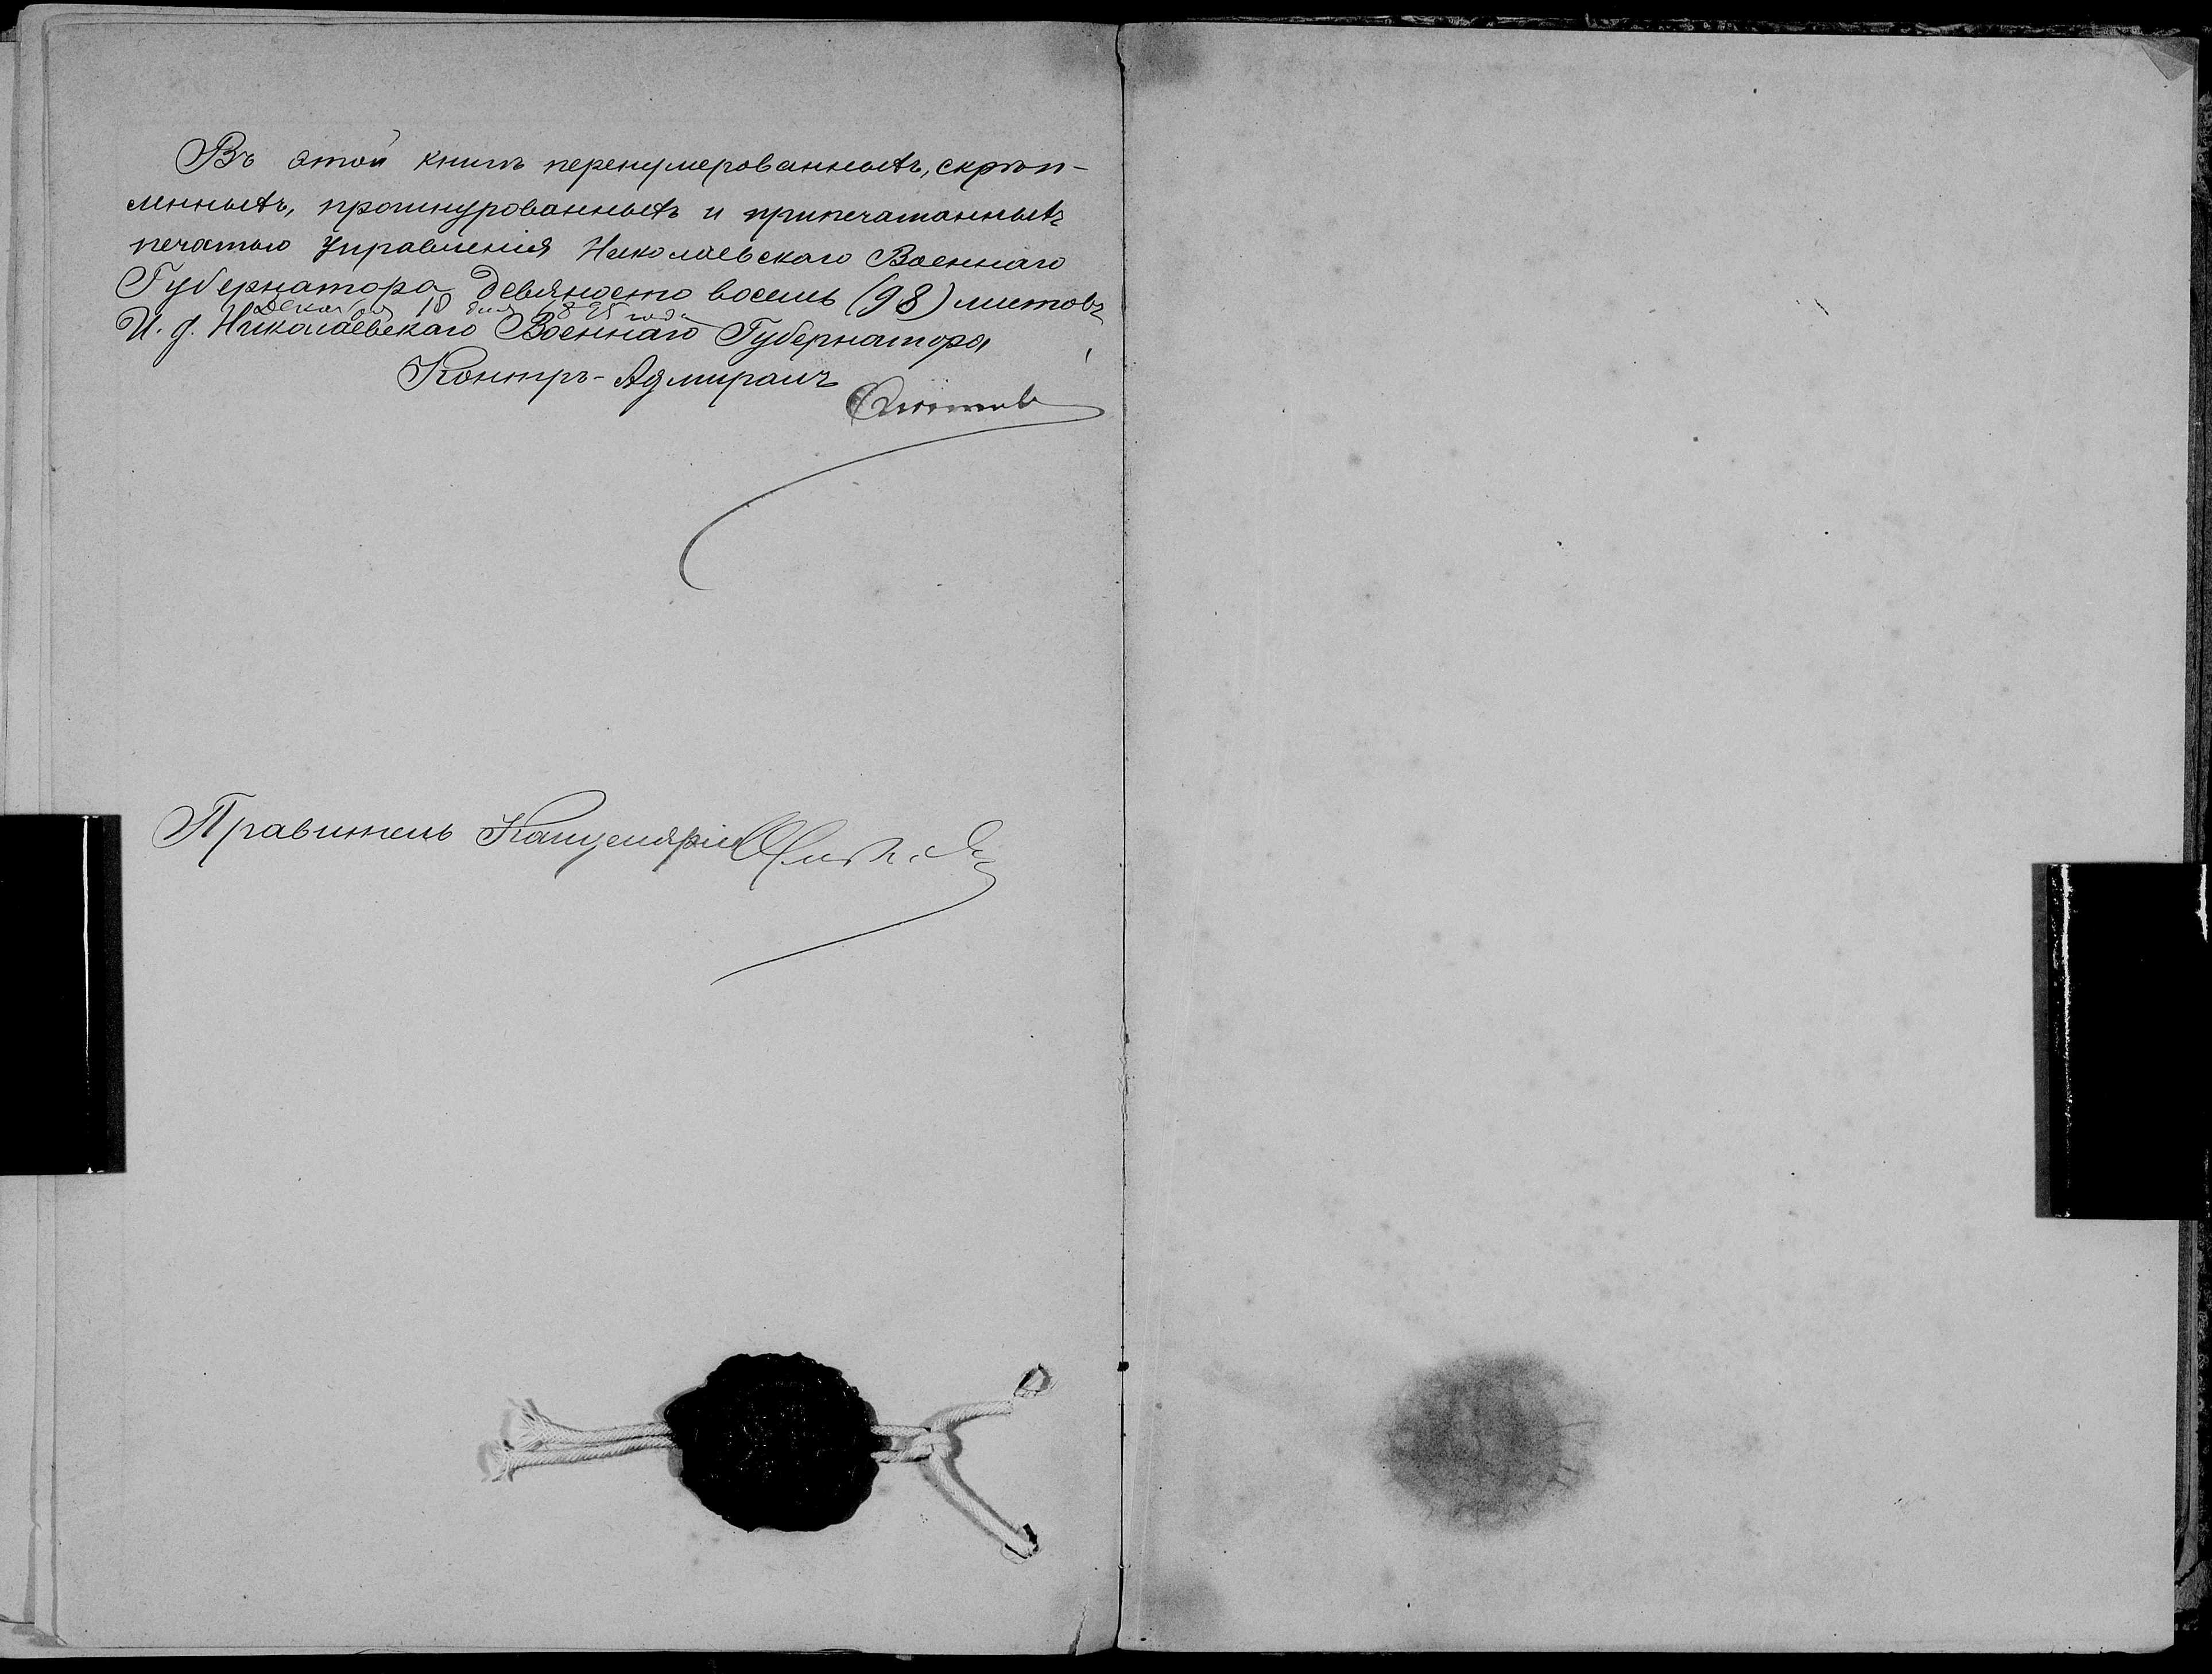 Въ этой книгѣ перенумерованныхъ, скрѣп-
ленныхъ, прошнурованныхъ и припечатанныхъ
печатью Управленія Николаевскаго Военнаго
Губернатора девяносто восемь (98) листовъ
Декабря 18 дня 1895 года
И. д. Николаевскаго Военнаго Губернатора
Контръ-Адмиралъ
Правитель Канцеляріи